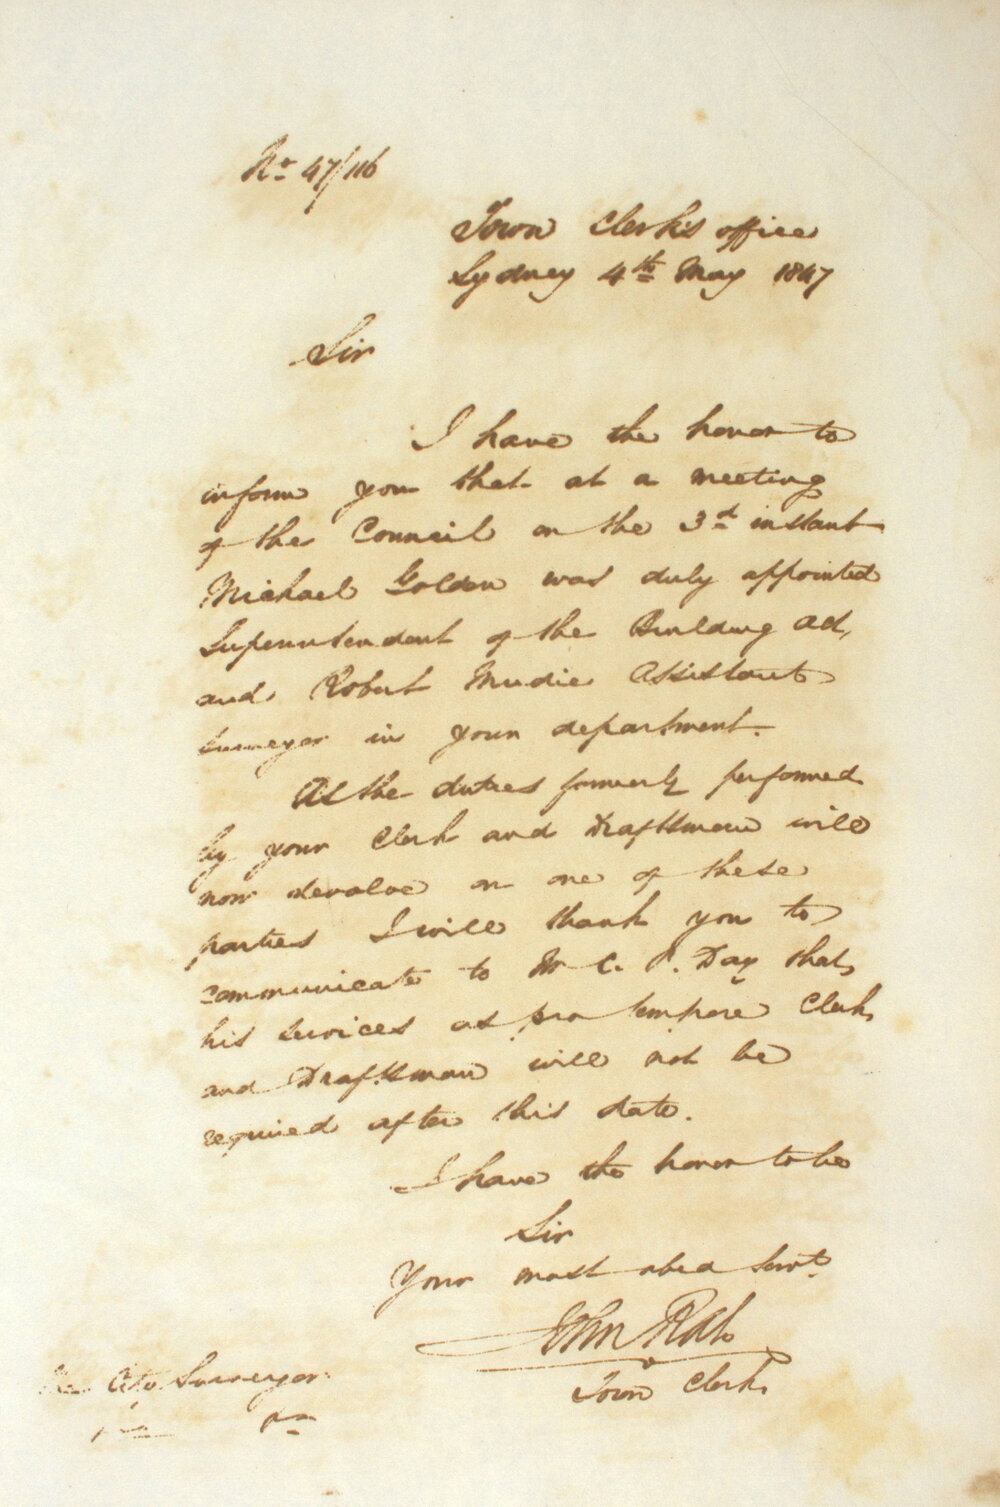 No 47/116
Town Clerk's office
Sydney 4th May 1847
Sir
I have the honor to
inform you that at a meeting
of the Council on the 3d instant
Michael Golden was duly appointed
Superintendent of the Building Act,
and Robert Mudie Assistant
Surveyor in your department.
As the duties formerly performed
by your Clerk and Draftsman will
now devolve on one of these
parties I will thank you to
communicate to Mr C. P. Day that
his services as pro tempore Clerk
and Draftsman will not be
required after this date.
I have the honor to be
Sir
Your most obed Servt
John Rae
Town Clerk
The City Surveyor